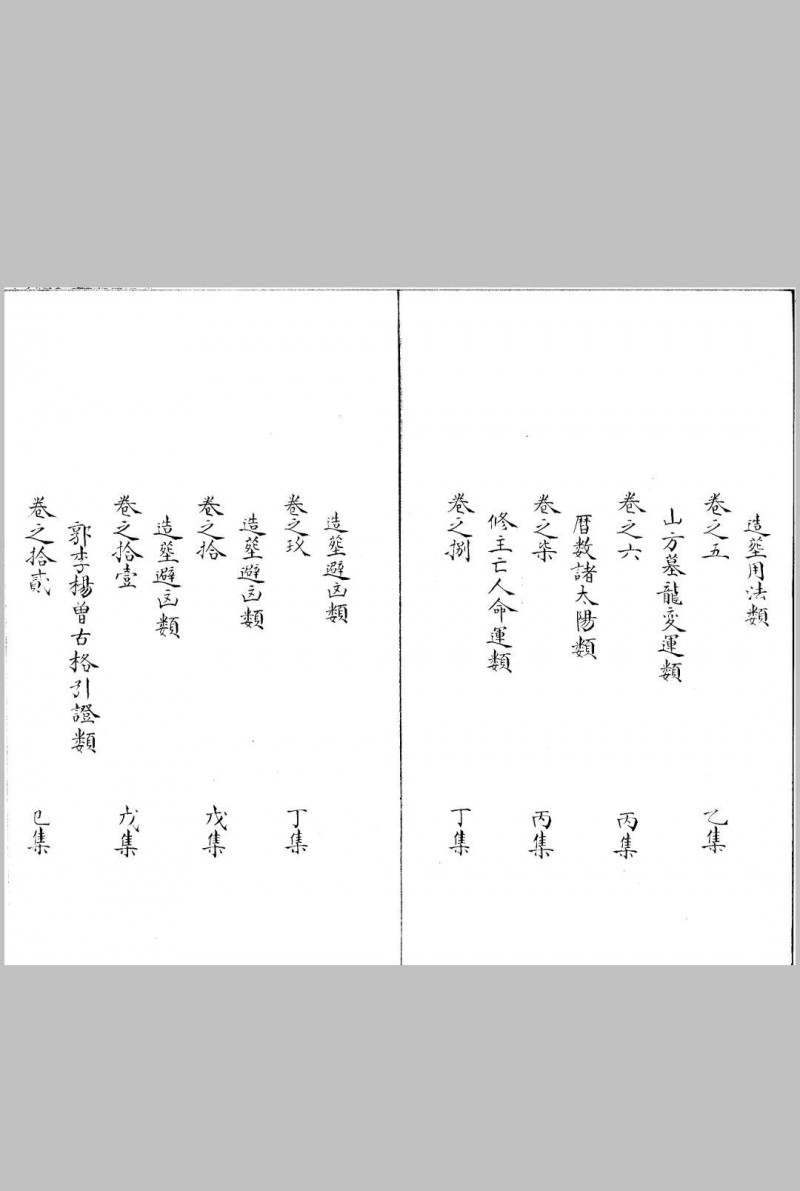 造葬用法類
卷之五 乙集
山方墓龍変運類
卷之六 丙集
曆数諸太陽類
卷之柒 丙集
修主亡人命運類
卷之捌 丁集
造葬避凶類
卷之玖 丁集
造葬避凶類
卷之拾 戊集
造葬避凶類
卷之拾壹 戊集
郭李楊曽古格引證類
卷之拾貳 已集